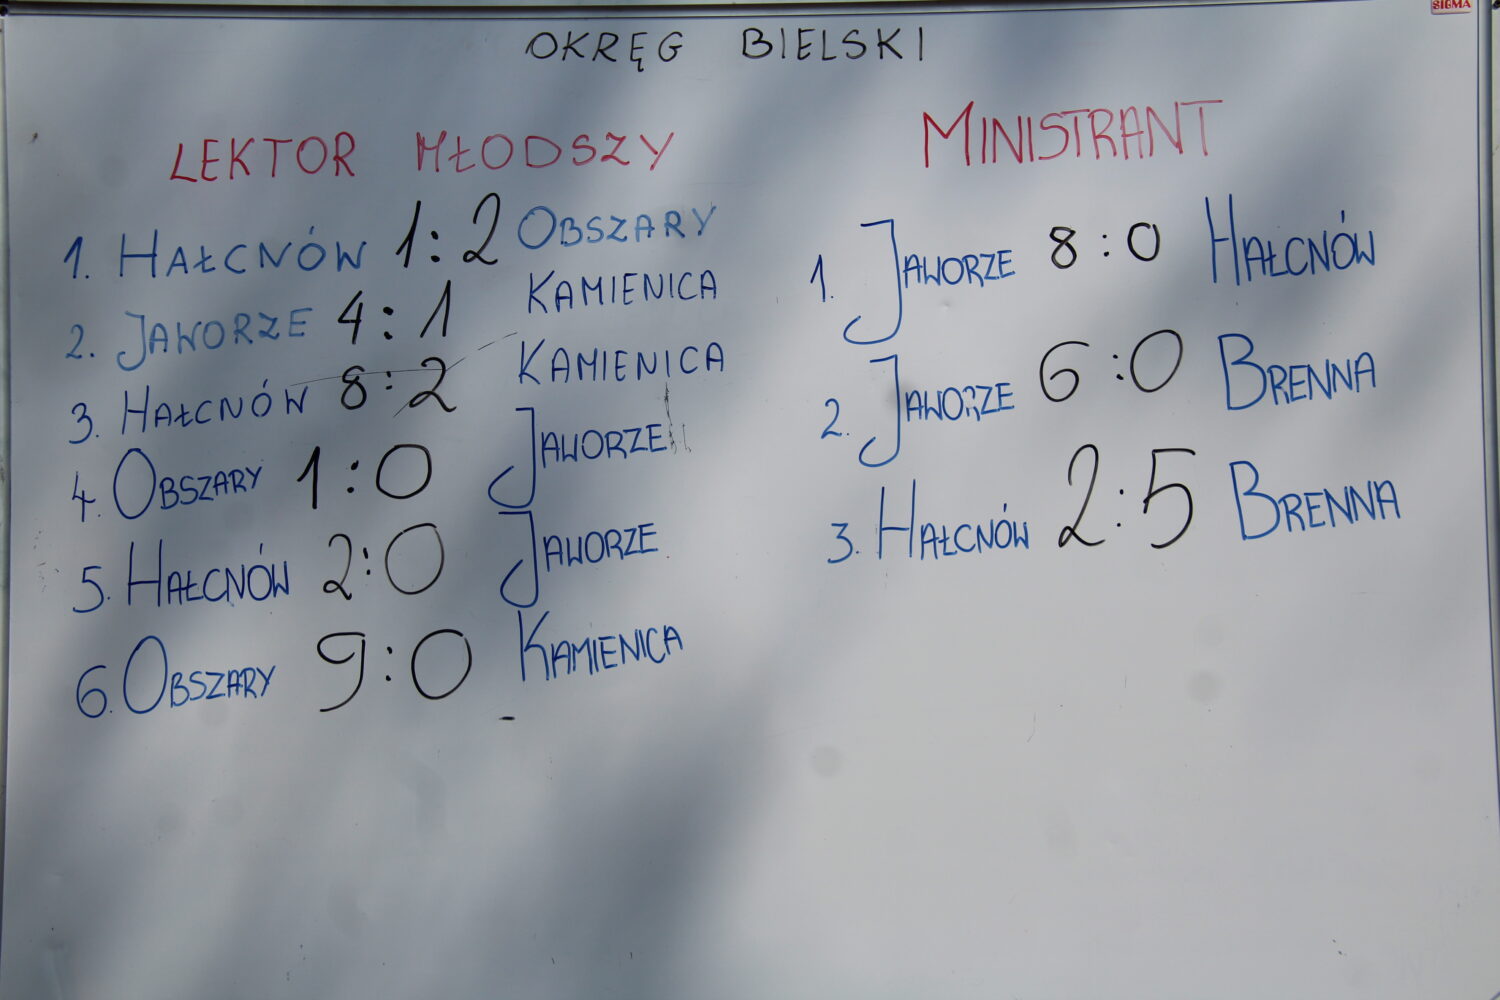 SIGMA
OKRĘG BIELSKI
LEKTOR MŁODSZY
1. HAŁCNÓW 1:2 OBSZARY
2. JAWORZE 4:1 KAMIENICA
3. HAŁCNÓW 8:2 KAMIENICA
4. OBSZARY 1:0 JAWORZE
5. HAŁCNÓW 2:0 JAWORZE
6. OBSZARY 9:0 KAMIENICA
MINISTRANT
1. JAWORZE 8:0 HAŁCNÓW
2. JAWORZE 6:0 BRENNA
3. HAŁCNÓW 2:5 BRENNA